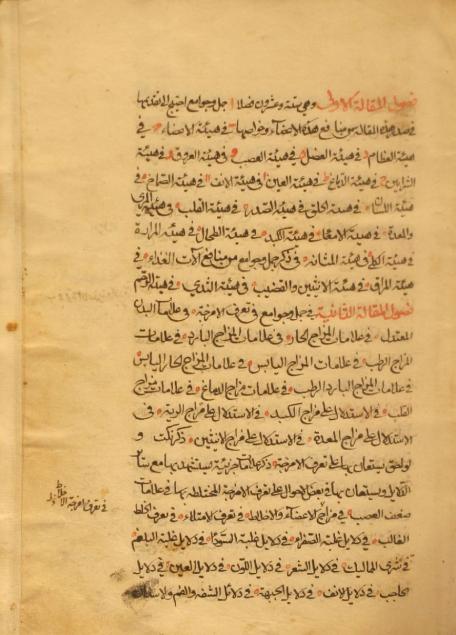 فصول المقالة الاولى وهي ستة وعشرون فصلا ا جمل وجوامع احتيج الى تقديمها
في صدر هذه المقالة من منافع هذه الاعضاء وخواصها في هيئة الاعضاء في
هيئة العظام في هيئة العضل في هيئة العصب في هيئة العروق في هيئة
الشرايين في هيئة الدماغ في هيئة العين في هيئة الانف في هيئة الصماخ في
هيئة اللسان في هيئة الحلق في هيئة الصدر في هيئة القلب في هيئة المرئ
والمعدة في هيئة الامعاء في هيئة الكبد في هيئة الطحال في هيئة المرارة
في هيئة الكلى في هيئة المثانة في ذكر جمل وجوامع من منافع آلات الغذاء في
هيئة المراق في هيئة الانثيين والقضيب في هيئة الثدي في هيئة الرحم
فصول المقالة الثانية في جمل وجوامع في تعرف الامزجة في علامات البدن
المعتدل في علامات المزاج الحار في علامات المزاج البارد في علامات
المزاج الرطب في علامات المزاج اليابس في علامات المزاج الحار اليابس
في علامات المزاج البارد الرطب في علامات مزاج الدماغ في علامات مزاج
القلب في الاستدلال على مزاج الكبد في الاستدلال على مزاج الرية في
الاستدلال على مزاج المعدة في الاستدلال على مزاج الانثيين ذكر نكت و
توابع يستعان بها على تعرف الامزجة ذكر علامات جزئية يستشهد بها مع سائر
الدلايل ويستعان بها في بعض الاحوال على تعرف الامزجة المختلطة بها في علامات
ضعف العصب في مزاج الاعضاء والاخلاط في تعرف الامتلاء في تعرف الخلط
الغالب في دلايل غلبة الصفراء في دلايل غلبة السوداء في دلايل غلبة البلغم
في شرى المماليك في دلايل الشعر في دلايل اللون في دلايل العين في دلايل
الحاجب في دلايل الانف في دلايل الجبهة في دلائل الشفة والفم والاسنان
في تعرف امزجة الاخلاط